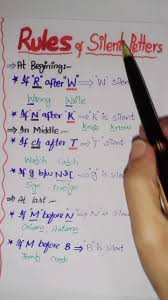 Rules of Silent Letters
→ At Begining:→
* If "R" after "W" → "W" silent
Wrong Write
* If N after "K" → "K" is silent
Knife Know
→ In Middle:→
* If ch after T → "T" silent
Watch Catch
* If g b/w N & I → "G" is silent
Sign Foreign
→ At last:→
* If M before "N" → N is silent
Column Autumn
* If M before B → "B" is silent
Tomb Comb